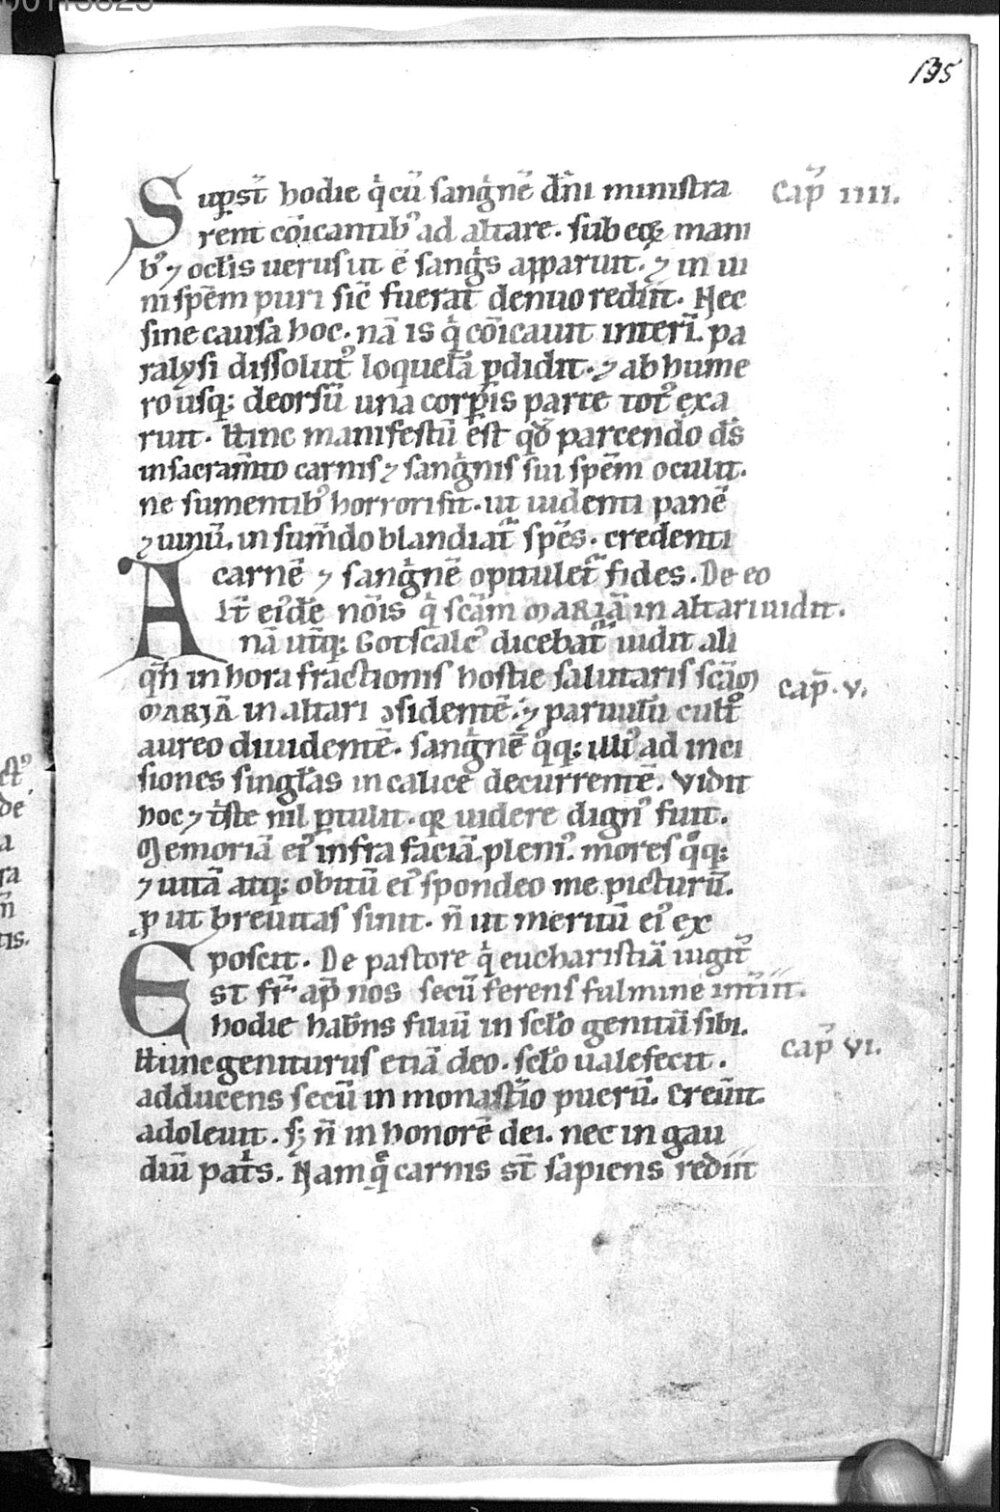 135
Sup̱st̄ hodie q̇ cū sangͥnē dn̄i ministra
Cap̄ IIII.
rent cōicantibꝰ ad altare. sub eoꝝ mani
bꝰ ⁊ oc̄lis uerus ut ē sangͥs apparuit. ⁊ in ui
ni sp̄em puri sic̄ fuerat denuo rediit. Nec
sine causa hoc. nā is q̇ cōicauit interī. pa
ralysi dissolutꝰ loquelā ꝑdidit. ⁊ ab hume
ro usq; deorsū una corꝑis parte totꝰ exa
ruit. Hinc manifestū est qđ parcendo ds̄
in sacram̄to carnis ⁊ sangͥnis sui sp̄em oculit.
ne sumentibꝰ horrori sit. ut uidenti panē
⁊ uinū. in sum̄do blandiat᷑ sp̄es. credenti
carnē ⁊ sangͥnē opitulet᷑ fides. De eo
Alt̄ eiꝰdē nōis q̇ sc̄am MARIĀ in altari uidit.
nā utiq; Gotscalcꝰ dicebat᷑ uidit ali
qn̄ in hora fractionis hostie salutaris sc̄am
Cap̄. V.
MARIĀ in altari ↄsidentē. ⁊ paruulū cult᷑o
aureo diuidentē. sangͥnē q̊q; illiꝰ ad inci
siones singl̄as in calicē decurrentē. Vidit
hoc ⁊ tͥste nil ꝑtulit. qꝛ uidere dignꝰ fuit.
Memoriā eiꝰ infra faciā pleniꝰ. mores q̊q;
⁊ uitā atq; obitū eiꝰ spondeo me picturū.
ꝓut breuitas sinit. n̄ ut meritū eiꝰ ex
poscit. De pastore q̇ eucharistiā iugit᷑
Est fr̄ ap̄ nos secū ferens fulmine int᷑iit.
hodie habn̄s filiū in sclo genitū sibi.
Cap̄ VI.
Hunc geniturus etiā deo. sclo ualefecit.
adducens secū in monast̄io puerū. Creuit.
adoleuit. s; n̄ in honorē dei. nec in gau
diū patͥs. Nam q̇ carnis st̄ sapiens rediit